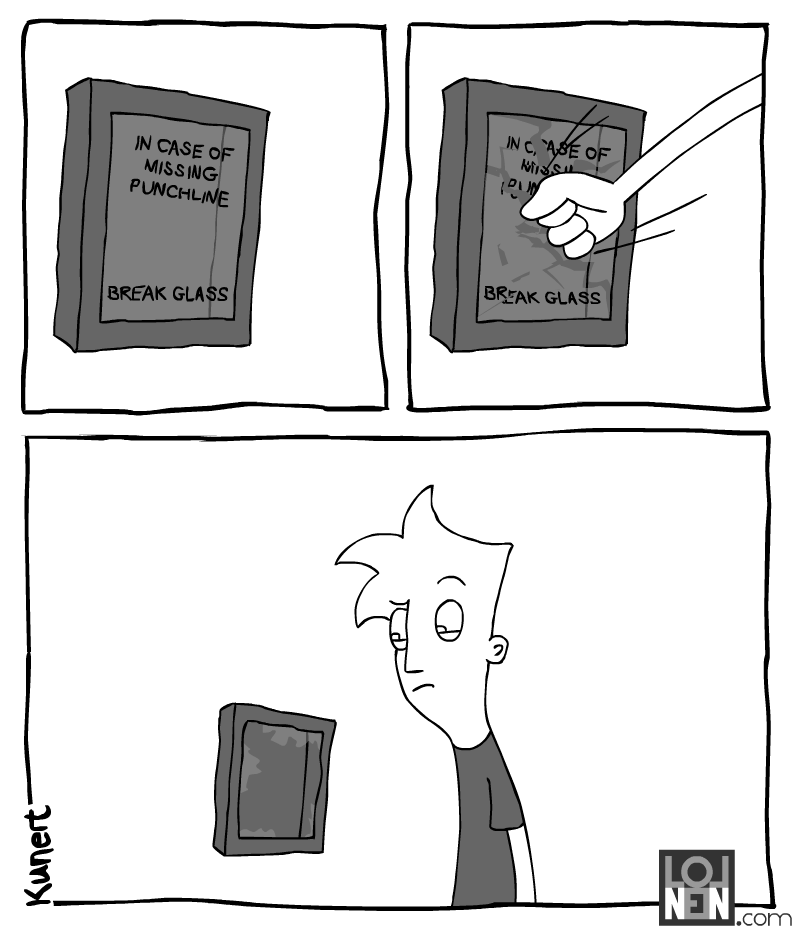 IN CASE OF
MISSING
PUNCHLINE
BREAK GLASS
IN CASE OF
BREAK GLASS
Kunert
LOL
NEIN.com